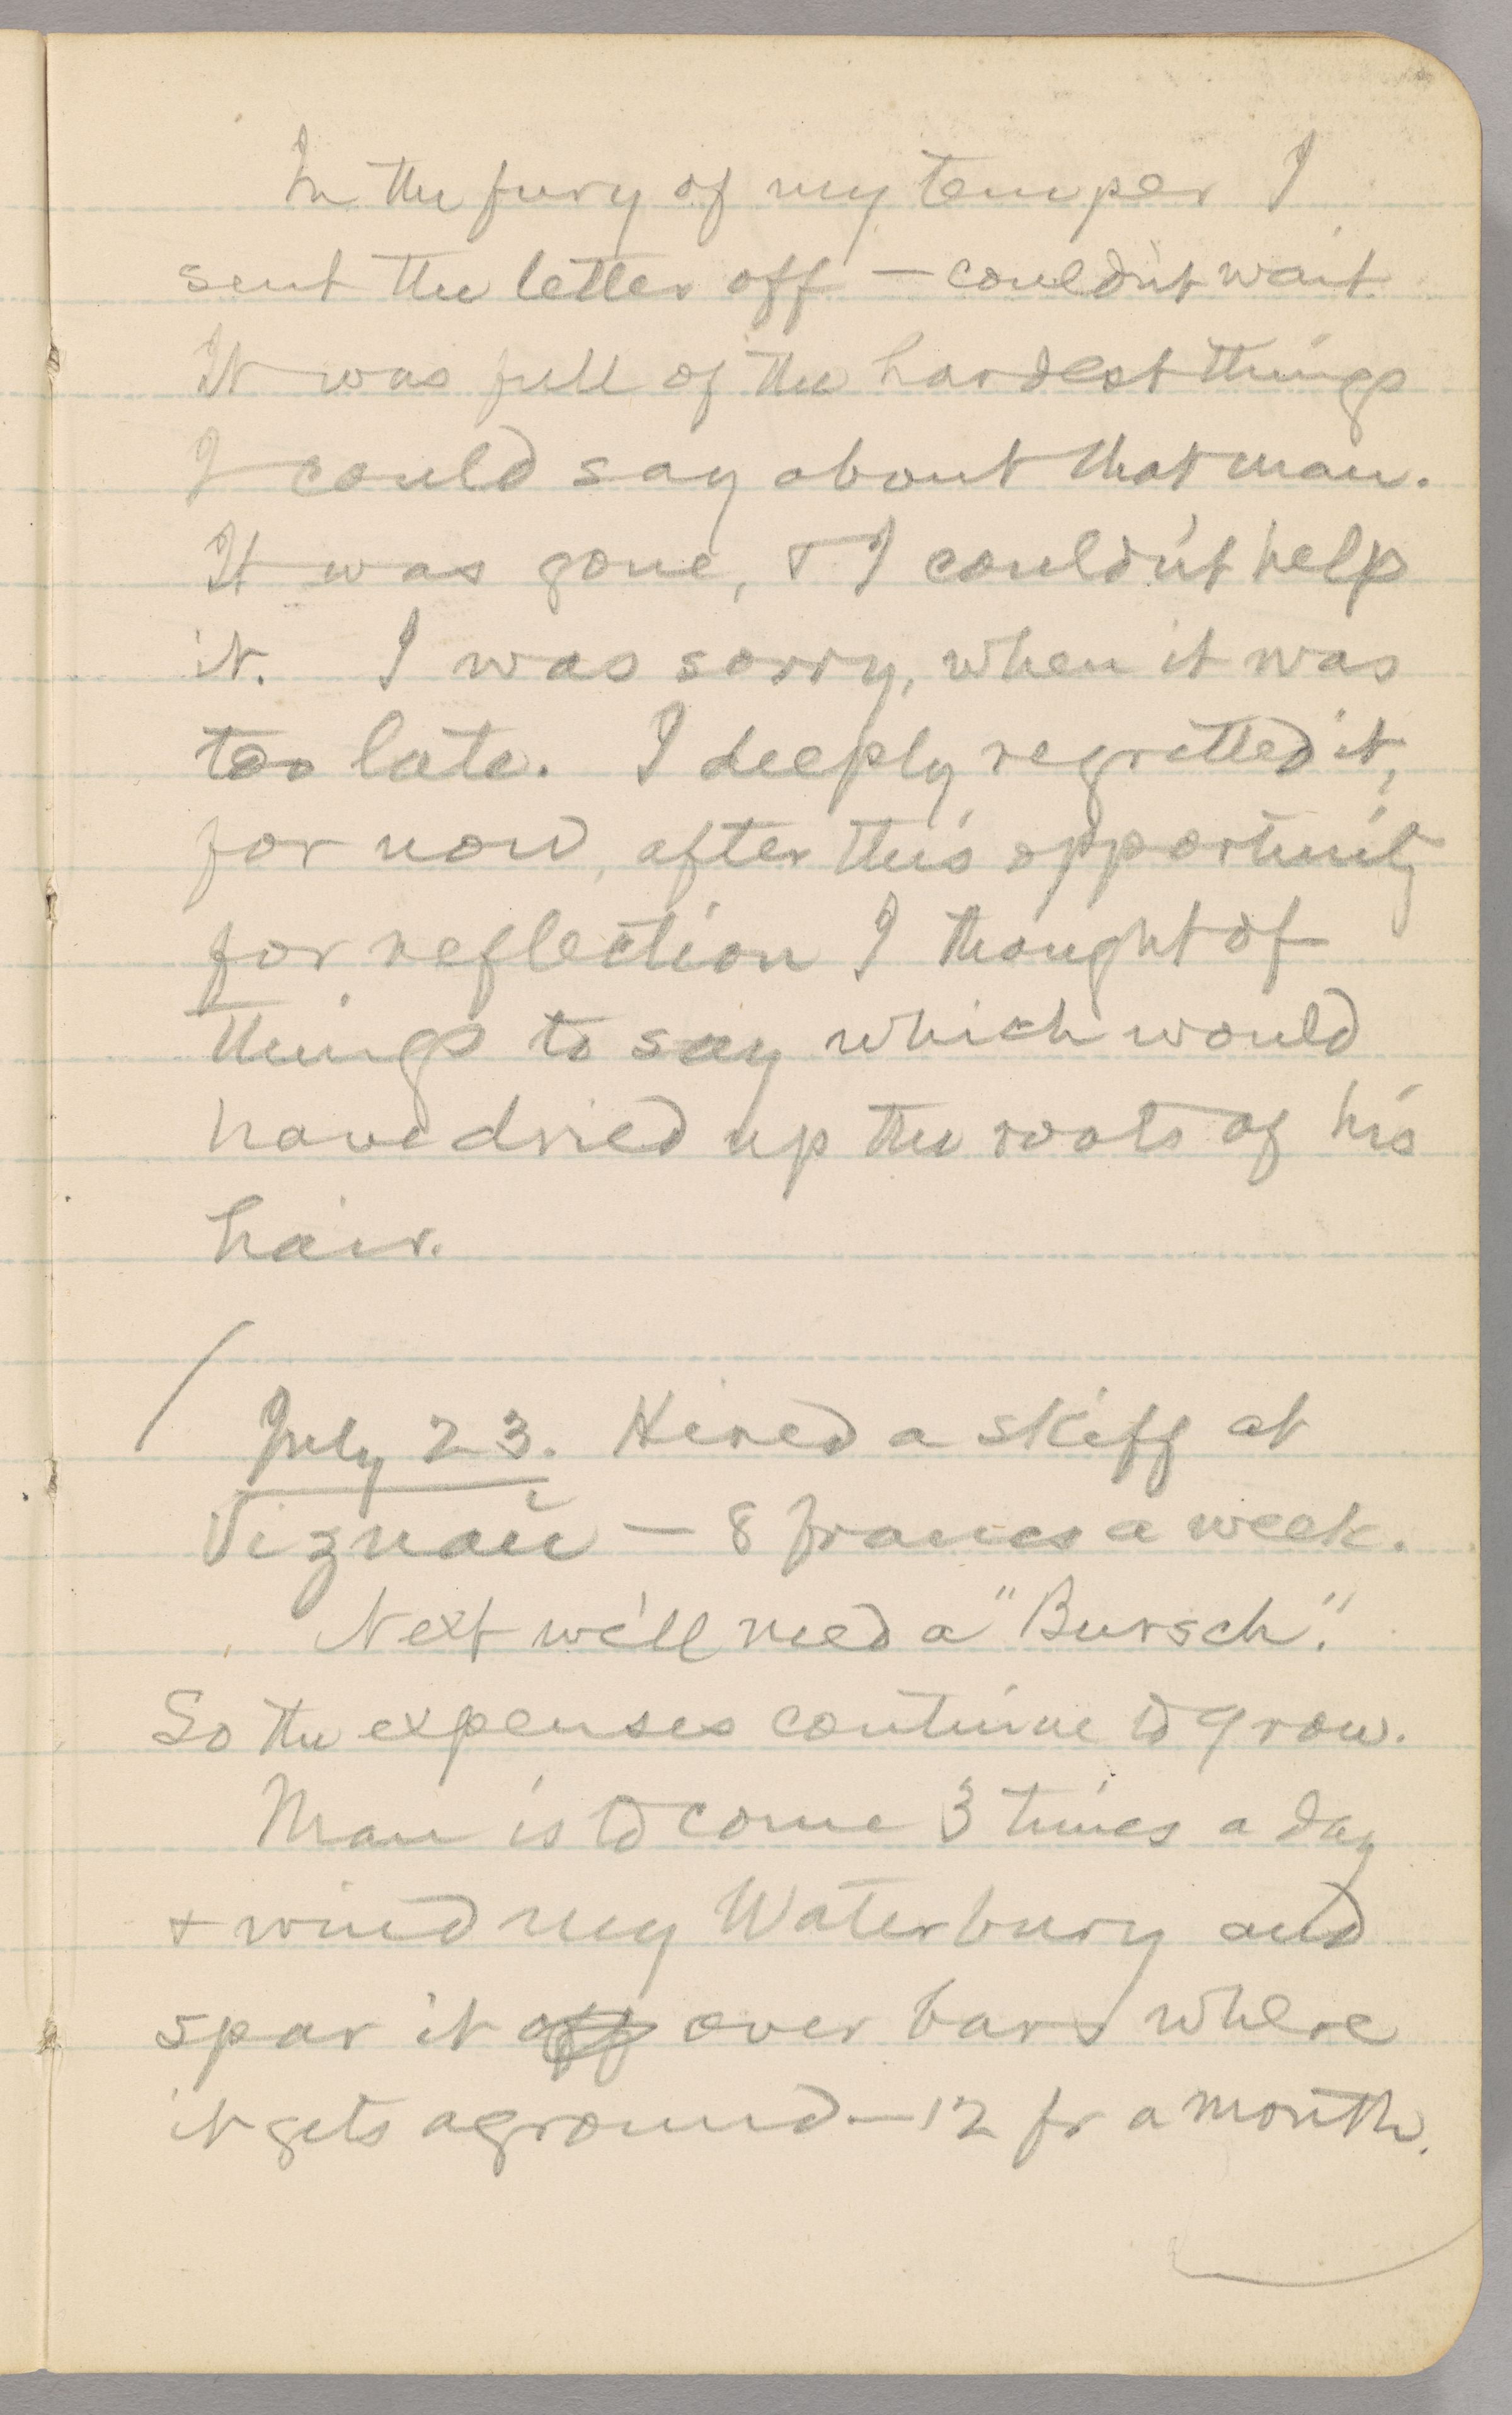 In the fury of my temper I
sent the letter off — couldn't wait.
It was full of the hardest things
I could say about that man.
It was gone, & I couldn't help
it. I was sorry, when it was
too late. I deeply regretted it,
for now, after this opportunity
for reflection I thought of
things to say which would
have dried up the roots of his
hair.
July 23. Hired a skiff at
Viznau — 8 francs a week.
Next we'll need a "Bursch."
So the expenses continue to grow.
Man is to come 3 times a day
& wind my Waterbury and
spar it off over bars where
it gets aground — 12 fr a month.